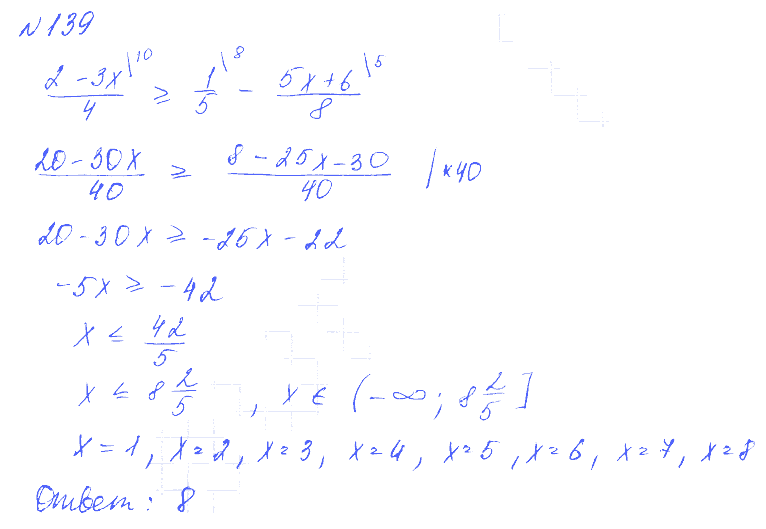 N 139
(2 - 3x)/4 \10 ≥ 1/5 \8 - (5x + 6)/8 \5
(20 - 30x)/40 ≥ (8 - 25x - 30)/40 | ×40
20 - 30x ≥ -25x - 22
-5x ≥ -42
x ≤ 42/5
x ≤ 8 2/5 , x ∈ (-∞; 8 2/5]
x = 1, x = 2, x = 3, x = 4, x = 5, x = 6, x = 7, x = 8
Ответ: 8